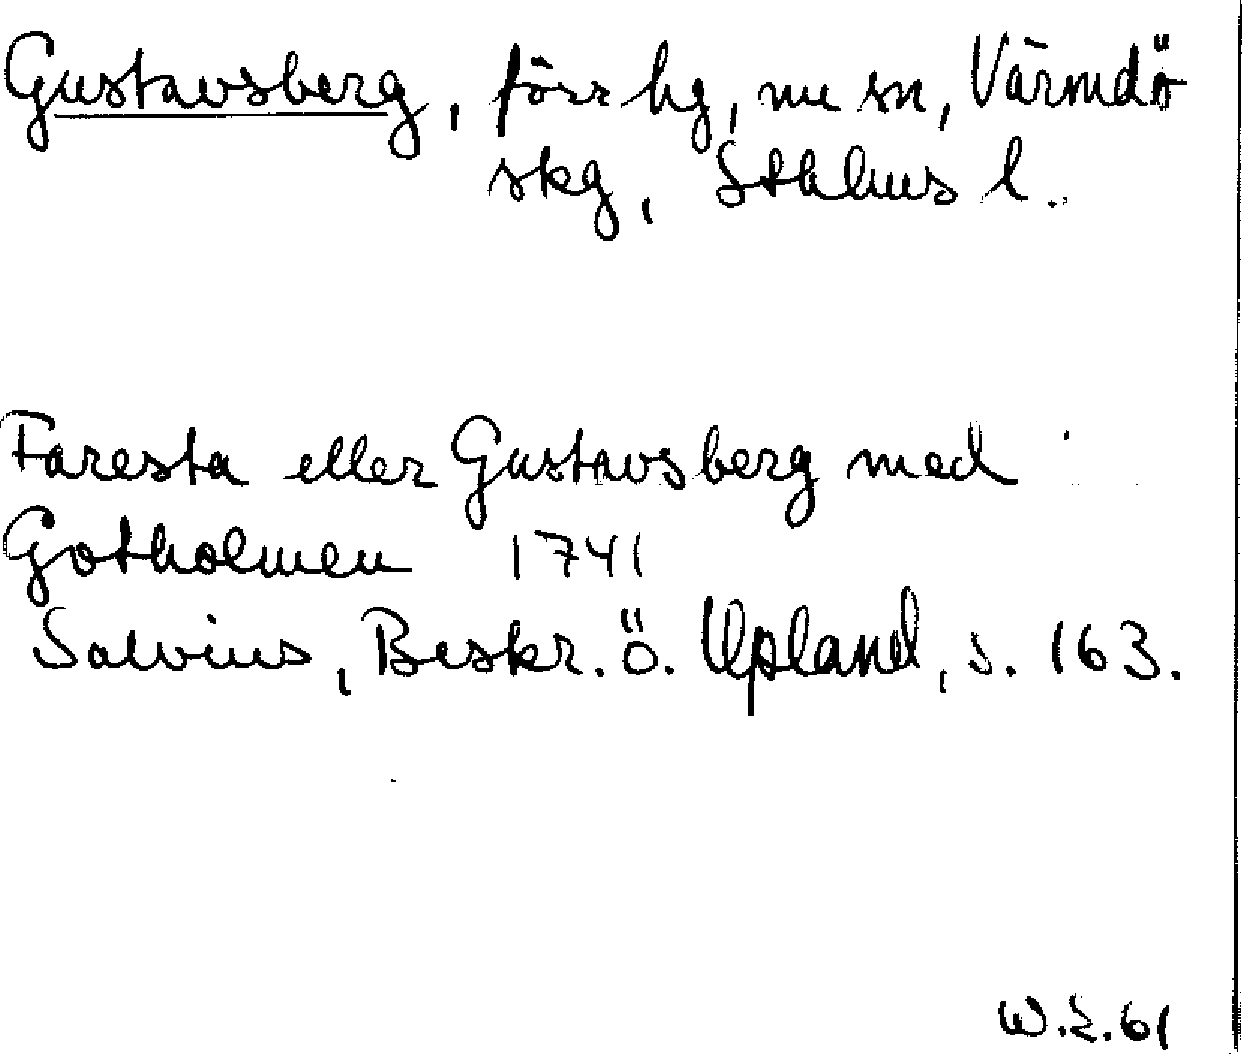 Gustavsberg, förr hg, nu sn, Värmdö
skg, Sthlms l.
Faresta eller Gustavsberg med
Gotholmen 1741
Salvius, Beskr. ö. Upland, s. 163.
W.E.61